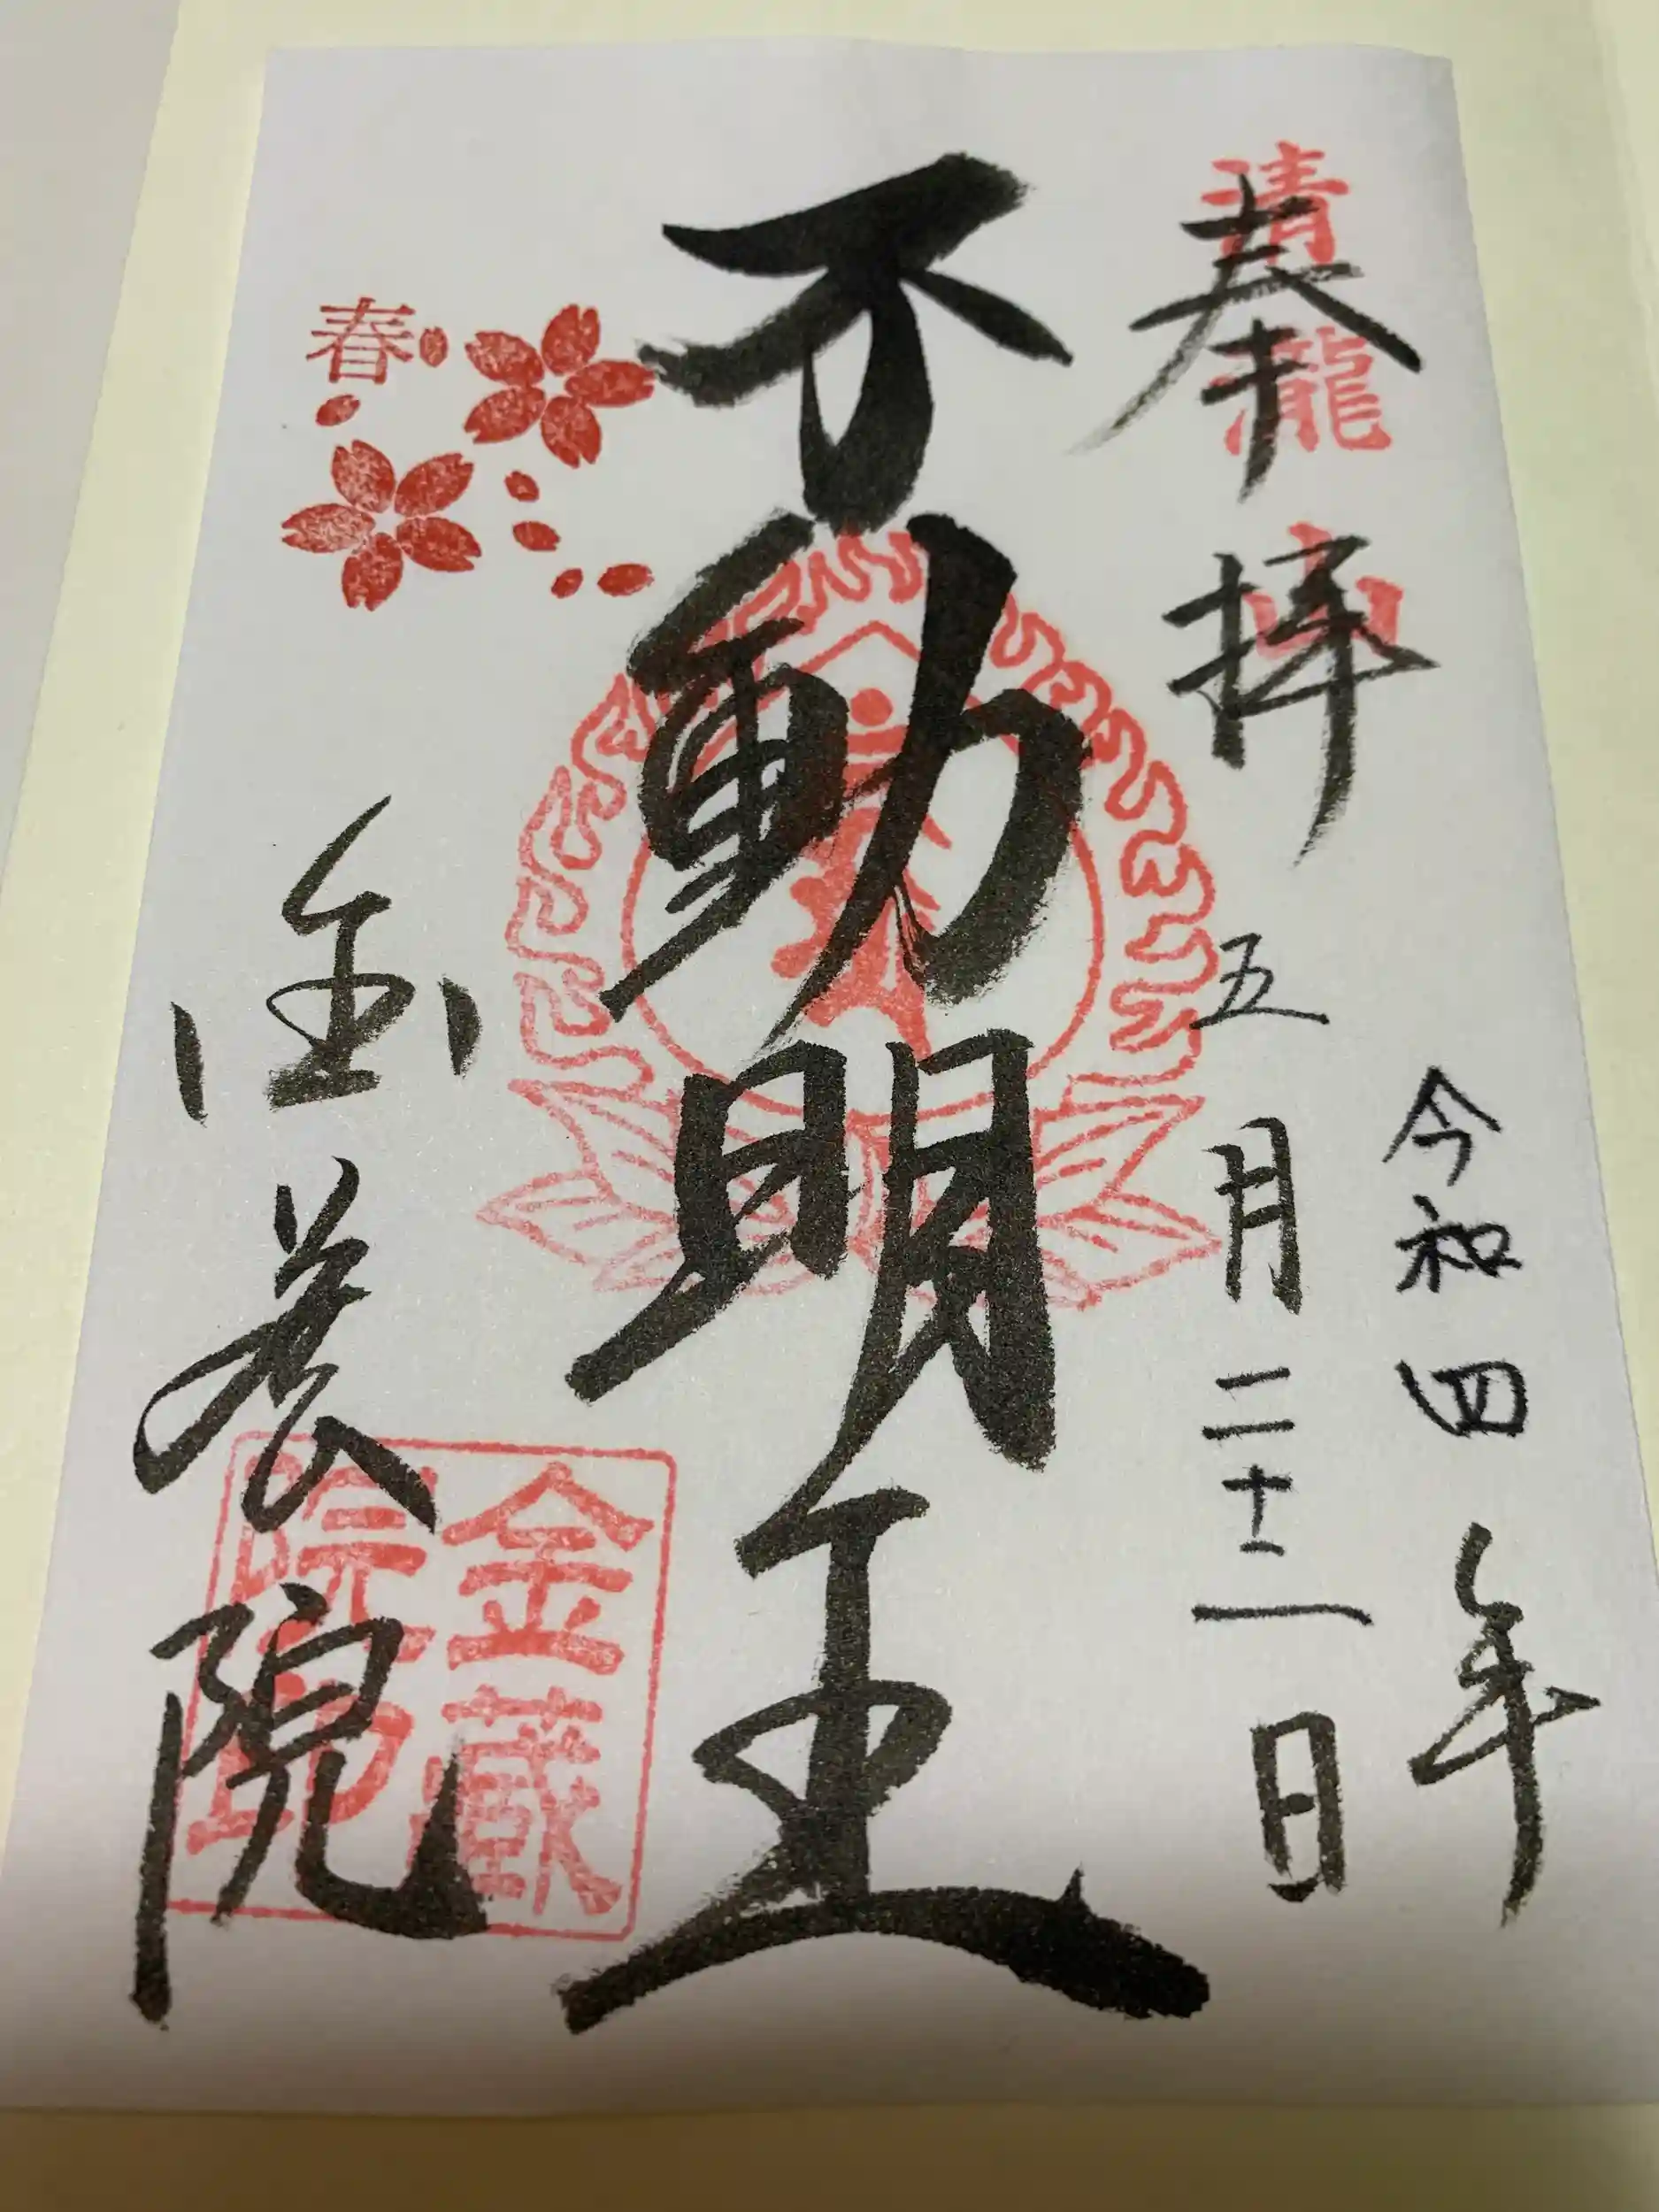 令和四年
清瀧山
奉拝
五月二十二日
不動明王
春
金蔵院
金蔵院印